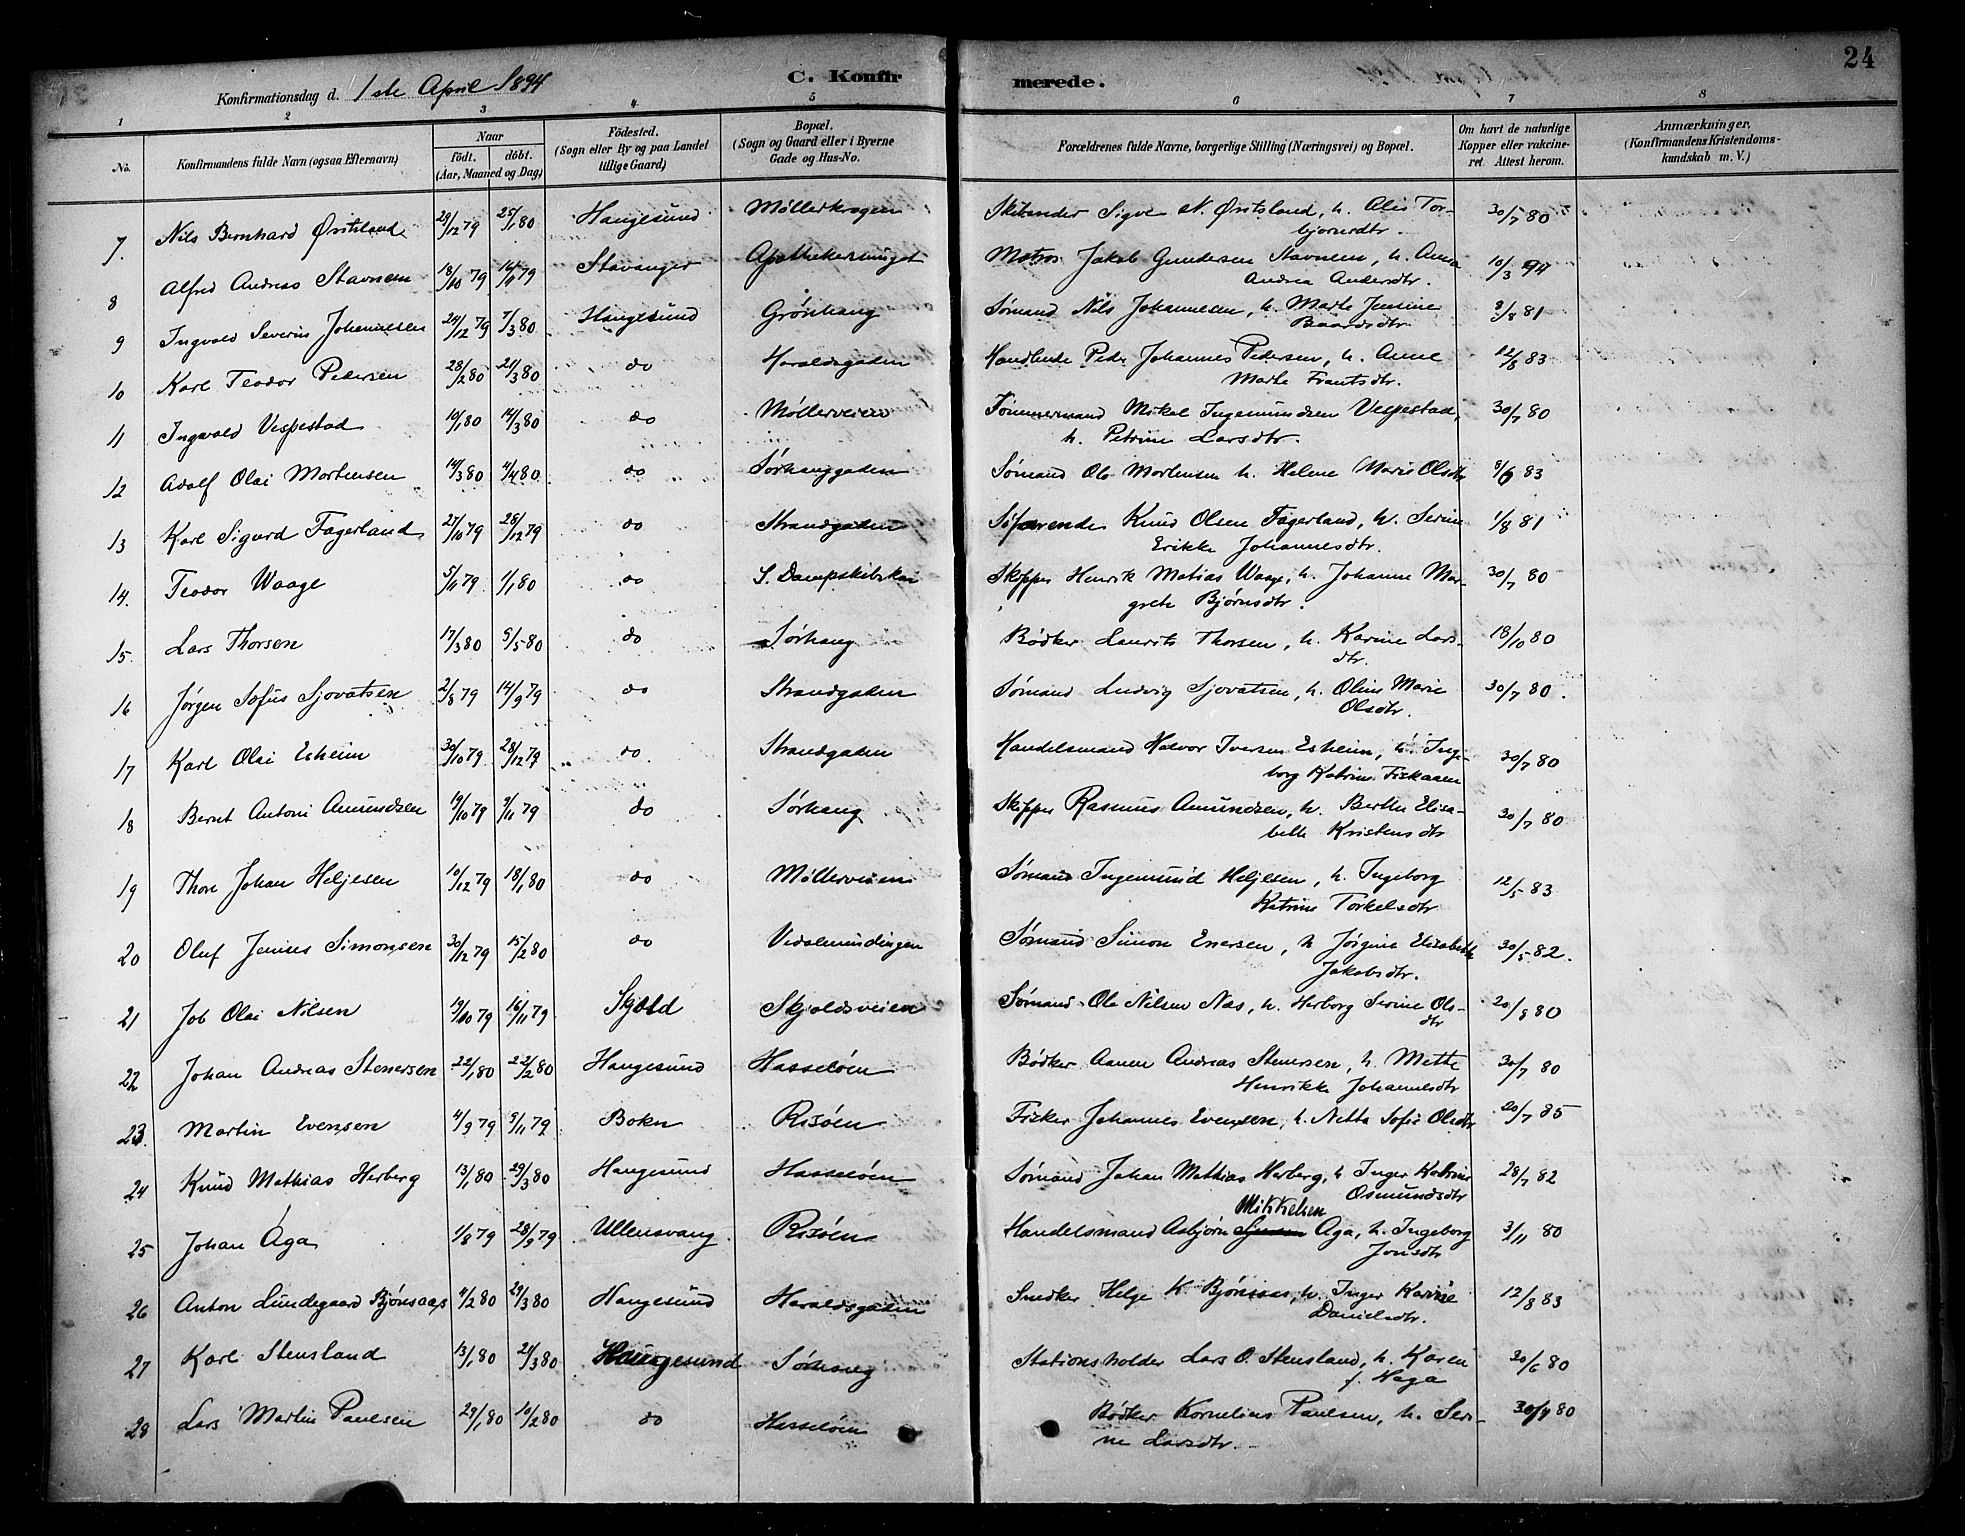 24
Konfirmationsdag d. 1ste April 1894 C. Konfirmerede.
1 2 3 4 5 6 7 8
No. Konfirmandens fulde Navn (ogsaa Efternavn) Naar födt. döbt. (Aar, Maaned og Dag) Födested. (Sogn eller By og paa Landet tillige Gaard) Bopæl. (Sogn og Gaard eller i Byerne Gade og Hus-No. Forældrenes fulde Navne, borgerlige Stilling (Næringsvei) og Bopæl. Om havt de naturlige Kopper eller vaccineret. Attest herom. Anmærkninger. (Konfirmandens Kristendomskundskab m. V.)
7. Nils Bernhard Østsland 29/12 79 25/1 80 Haugesund Møllerkrogen Sigve N. Østsland, h. Alis Tor- 30/7 80
bjørnsdtr.
8 Alfred Andreas Stavnem 18/10 79 16/11 79 Stavanger Apothekersmuget Matros Jakob Gundersen Stavnem, h. Anna 10/3 94
Andrea Andersdtr.
9 Ingvald Severin Johannesen 24/12 79 7/3 80 Haugesund Grönhaug Sømand Nils Johannesen, h. Marte Jensine 3/8 81
Baardsdtr.
10 Karl Teodor Pedersen 28/2 80 21/3 80 do Haraldsgaden Handlende Peder Johannes Pedersen, h. Anne 12/8 83
Marte Frantsdtr.
11 Ingvald Vespestad 10/1 80 14/3 80 do Møllerveien Tømmermand Mikal Ingemundsen Vespestad, 30/7 80
h. Petrine Larsdtr.
12 Adolf Olai Mortensen 14/3 80 4/4 80 do Sørhauggaden Sømand Ole Mortensen h. Helene Marie Olsdtr 8/6 83
13 Karl Sigurd Fagerland 27/10 79 28/12 79 do Strandgaden Søfarende Knud Olsen Fagerland, h. Serine 1/8 81
Erikke Johannesdtr.
14. Teodor Waage 5/11 79 1/1 80 do S. Dampskibskai Skipper Henrik Matias Waage, h. Johanne Mar- 30/7 80
grete Bjørnsdtr.
15. Lars Thorsen 17/3 80 9/5 80 do Sørhaug Bødker Laurits Thorsen, h. Karine Lars- 18/10 80
dtr.
16 Jørgen Sofus Sjovatsen 2/8 79 14/9 79 do Strandgaden Sømand Ludvig Sjovatsen, h. Oline Marie 30/7 80.
Olsdtr.
17 Karl Olai Esheim 30/10 79 28/12 79 do Strandgaden Handelsmand Halvor Iversen Esheim, h. Inge- 30/7 80
borg Katrine Fiskaaen
18 Bernt Antoni Amundsen 19/10 79 9/11 79 do Sørhaug Skipper Rasmus Amundsen, h. Berthe Elisa- 30/7 80
beth Kristensdtr
19 Thore Johan Heljesen 10/12 79 18/1 80 do Møllerveien Sømand Ingemund Heljesen, h. Ingeborg 12/5 83
Katrine Torkelsdtr
20 Oluf Jenses Simonsen 30/12 79 15/2 80 do Vidalsmindingen Sømand Simon Enersen, h Jørgine Elisabeth 30/5 82.
Jakobsdtr.
21 Job Olai Nilsen 19/10 79 16/11 79 Skjold Skjoldsveien Sømand Ole Nilsen Næs, h. Herborg Serine Ols- 20/8 80
dtr
22 Johan Andreas Stenersen 22/1 80 22/2 80 Haugesund Hasseløen Bødker Aanen Andreas Stenersen, h. Mette 30/7 80
Henrikke Johannesdtr
23. Martin Evensen 4/9 79 9/11 79 Boken Risöen Fisker Johannes Evensen, h. Netta Sofie Olsdtr 20/7 85
24 Knud Mathias Herberg 13/1 80 29/3 80 Haugesund Hasseløen Sømand Johan Mathias Herberg, h Inger Katrine 28/7 82
Osmundsdtr
Mikkelsen
25 Johan Aga 1/8 79 28/9 79 Ullensvang Risöen Handelsmand Asbjørn Aga, h. Ingeborg 3/11 80
Jonsdtr
26 Anton Lundegaard Bjönsaas 4/2 80 29/3 80 Haugesund Haraldsgaden Snedker Helge K. Bjönsaas, h. Inger Karine 12/8 83
Danielsdtr.
27 Karl Stensland 13/1 80 21/3 80 Haugesund Sørhaug Stationsholder Lars O. Stensland, h. Karen 30/6 80
f. Haga
28 Lars Martin Paulsen 29/1 80 10/2 80 do Hasseløen Bødker Kornelius Paulsen, h. Ser- 30/7 80
ine Larsdtr.